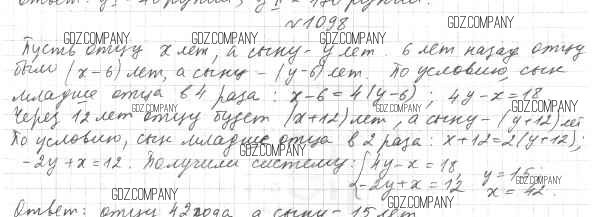 №1098
GDZ.COMPANY GDZ.COMPANY GDZ.COMPANY GDZ.COMPANY
Пусть отцу x лет, а сыну - y лет. 6 лет назад отцу
было (x-6) лет, а сыну - (y-6) лет. По условию, сын
младше отца в 4 раза: x-6=4(y-6); 4y-x=18
GDZ.COMPANY GDZ.COMPANY GDZ.COMPANY GDZ.COMPANY
Через 12 лет отцу будет (x+12) лет, а сыну - (y+12) лет
По условию, сын младше отца в 2 раза: x+12=2(y+12);
GDZ.COMPANY GDZ.COMPANY GDZ.COMPANY
-2y+x=12. Получили систему: {4y-x=18,
-2y+x=12, y=15, x=42.
GDZ.COMPANY GDZ.COMPANY GDZ.COMPANY GDZ.COMPANY
Ответ: отцу 42 года, а сыну - 15 лет